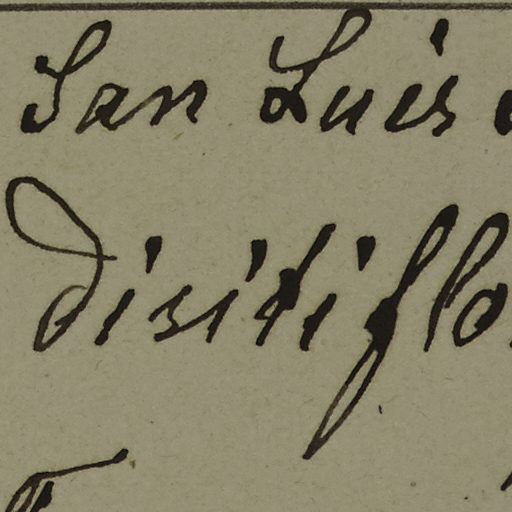 San Luis
disitiflo